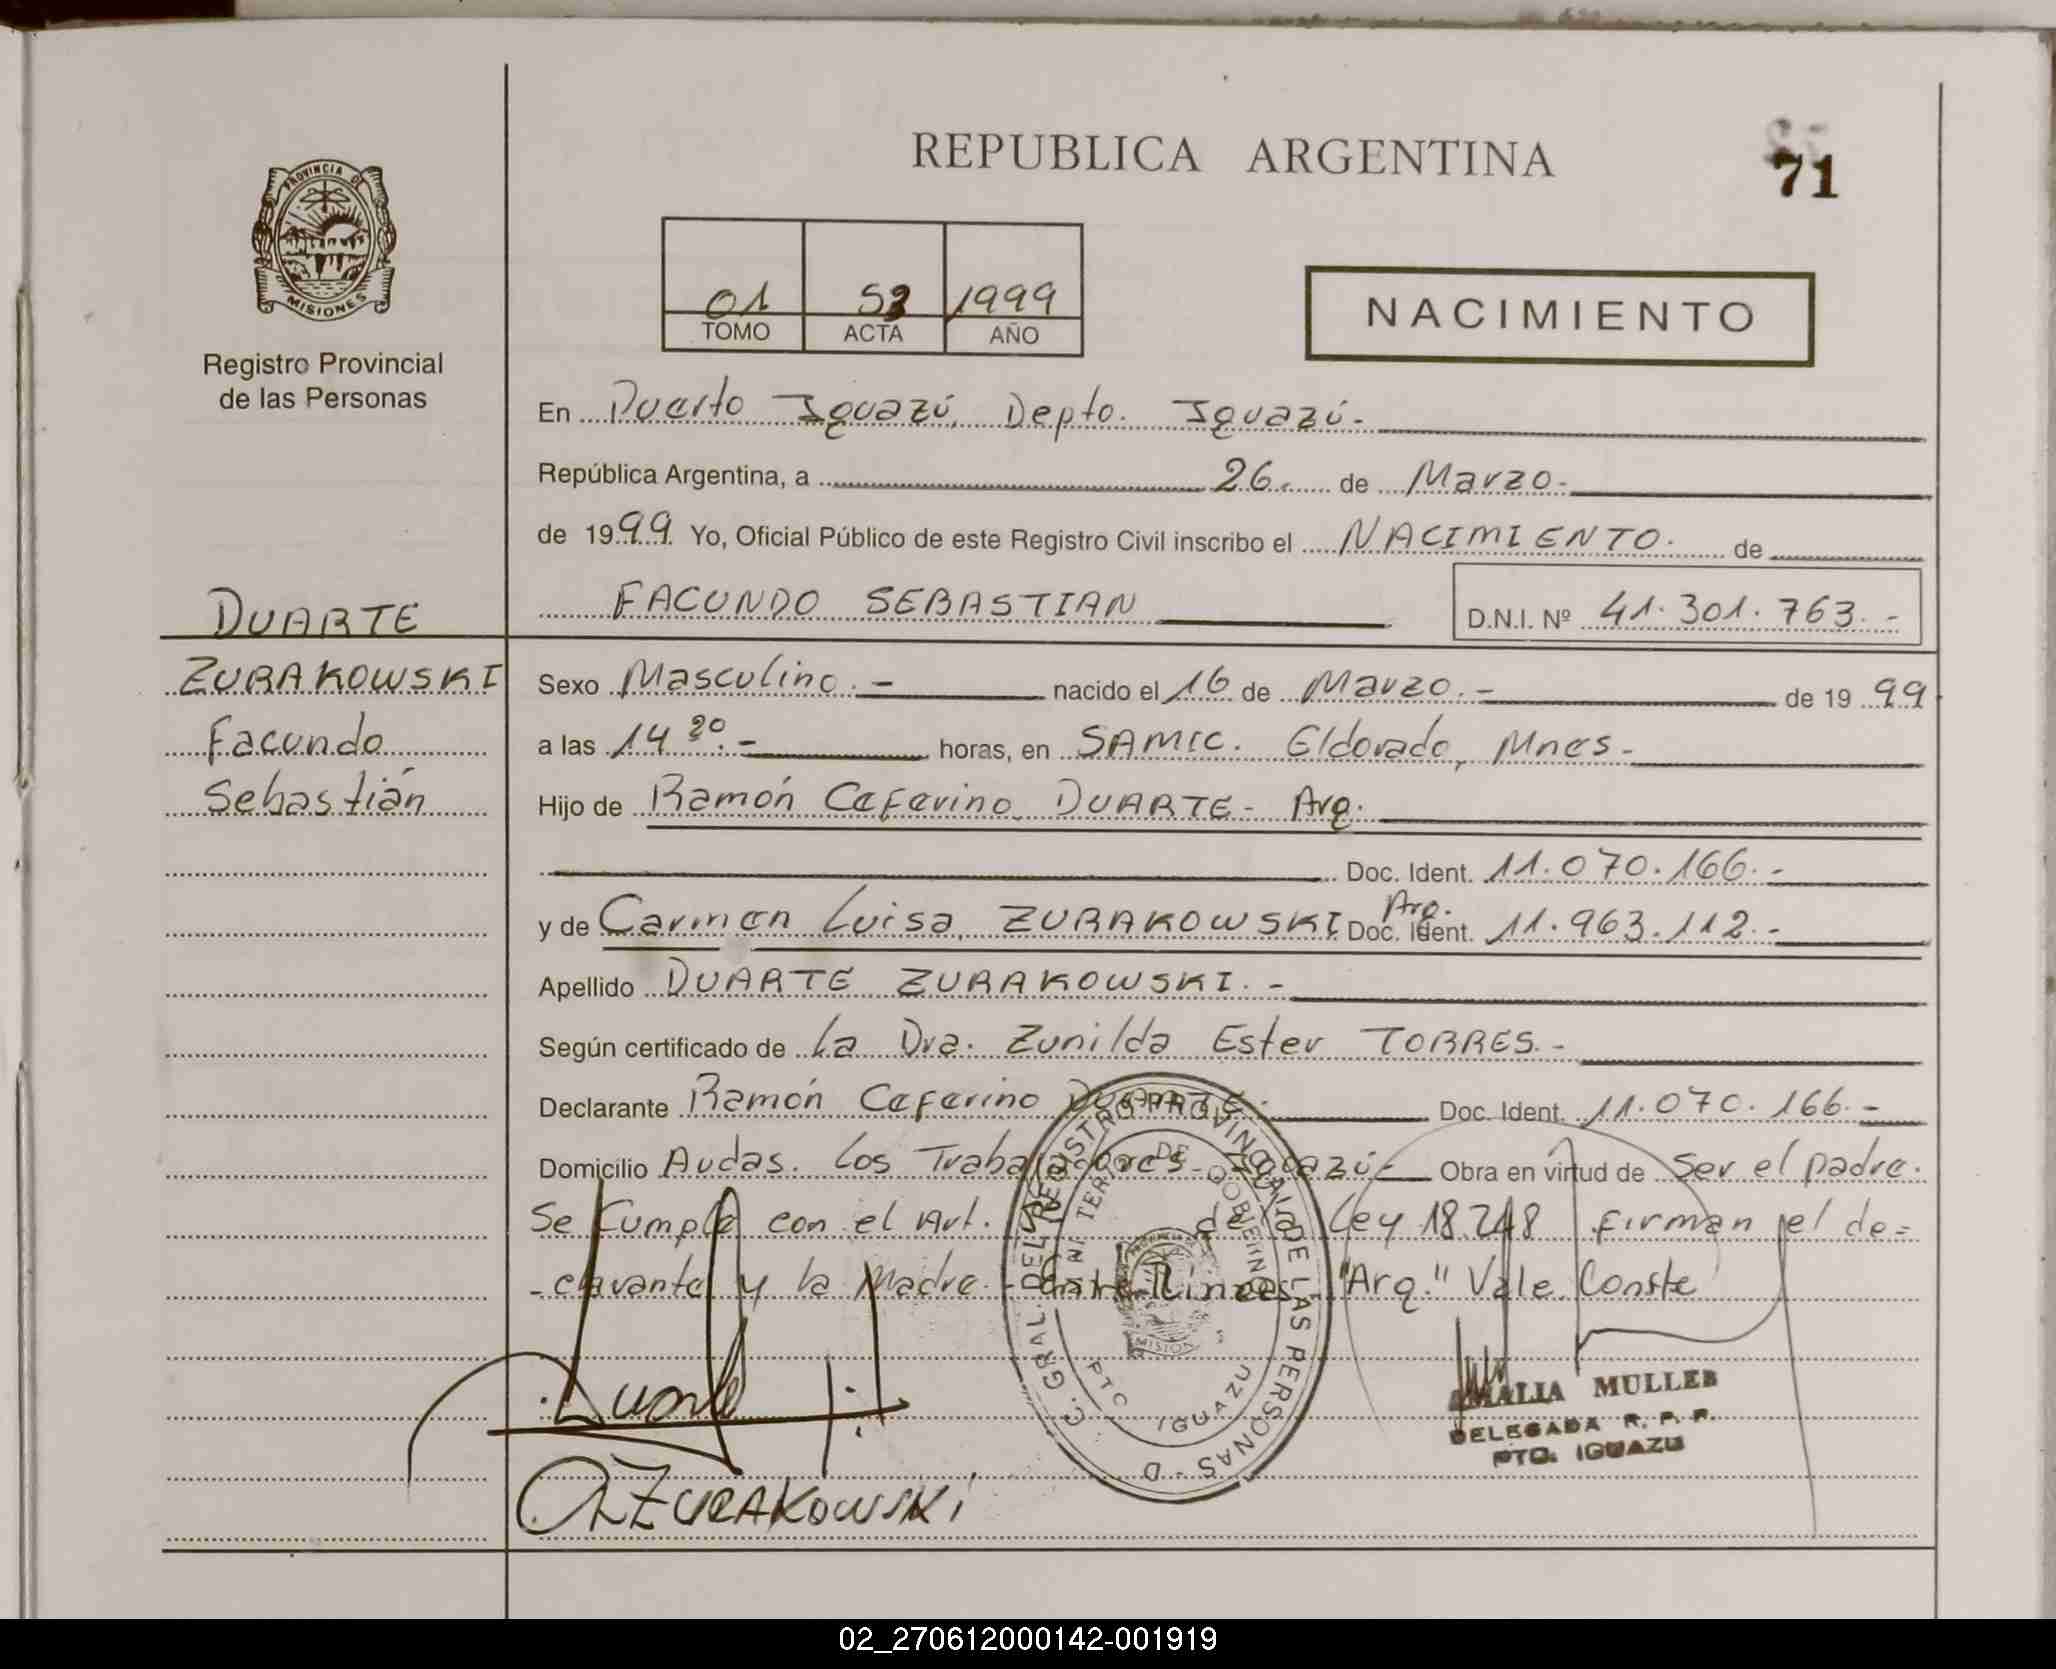 REPUBLICA ARGENTINA
71
PROVINCIA DE
MISIONES
Registro Provincial
de las Personas
01 53 1999
TOMO ACTA AÑO
NACIMIENTO
En Puerto Iguazú, Depto. Iguazú.-
República Argentina, a 26. de Marzo.-
de 1999 Yo, Oficial Público de este Registro Civil inscribo el NACIMIENTO. de
FACUNDO SEBASTIAN D.N.I. Nº 41.301.763.-
DUARTE
ZURAKOWSKI
Facundo
Sebastián
Sexo Masculino.- nacido el 16 de Marzo.- de 1999
a las 14 30.- horas, en SAMIC. Eldorado, Mnes.-
Hijo de Ramón Ceferino DUARTE- Arg.
Doc. Ident. 11.070.166.-
y de Carmen Luisa ZURAKOWSKI. Arg. Doc. Ident. 11.963.112.-
Apellido DUARTE ZURAKOWSKI.-
Según certificado de La Dra. Zunilda Ester TORRES.-
Declarante Ramón Ceferino DUARTE. Doc. Ident. 11.070.166.-
Domicilio Avdas. Los Trabajadores- Iguazú- Obra en virtud de Ser el padre.
Se Cumple con el Art. de Ley 18.248 firman el de=
-clarante y la Madre.- Entre lineas "Arg." Vale. Conste
REGISTRO PROVINCIAL DE LAS PERSONAS
DE GOBIERNO
PTO IGUAZU
AMALIA MULLER
DELEGADA R. P. P.
PTO. IGUAZU
ZURAKOWSKI
02_270612000142-001919